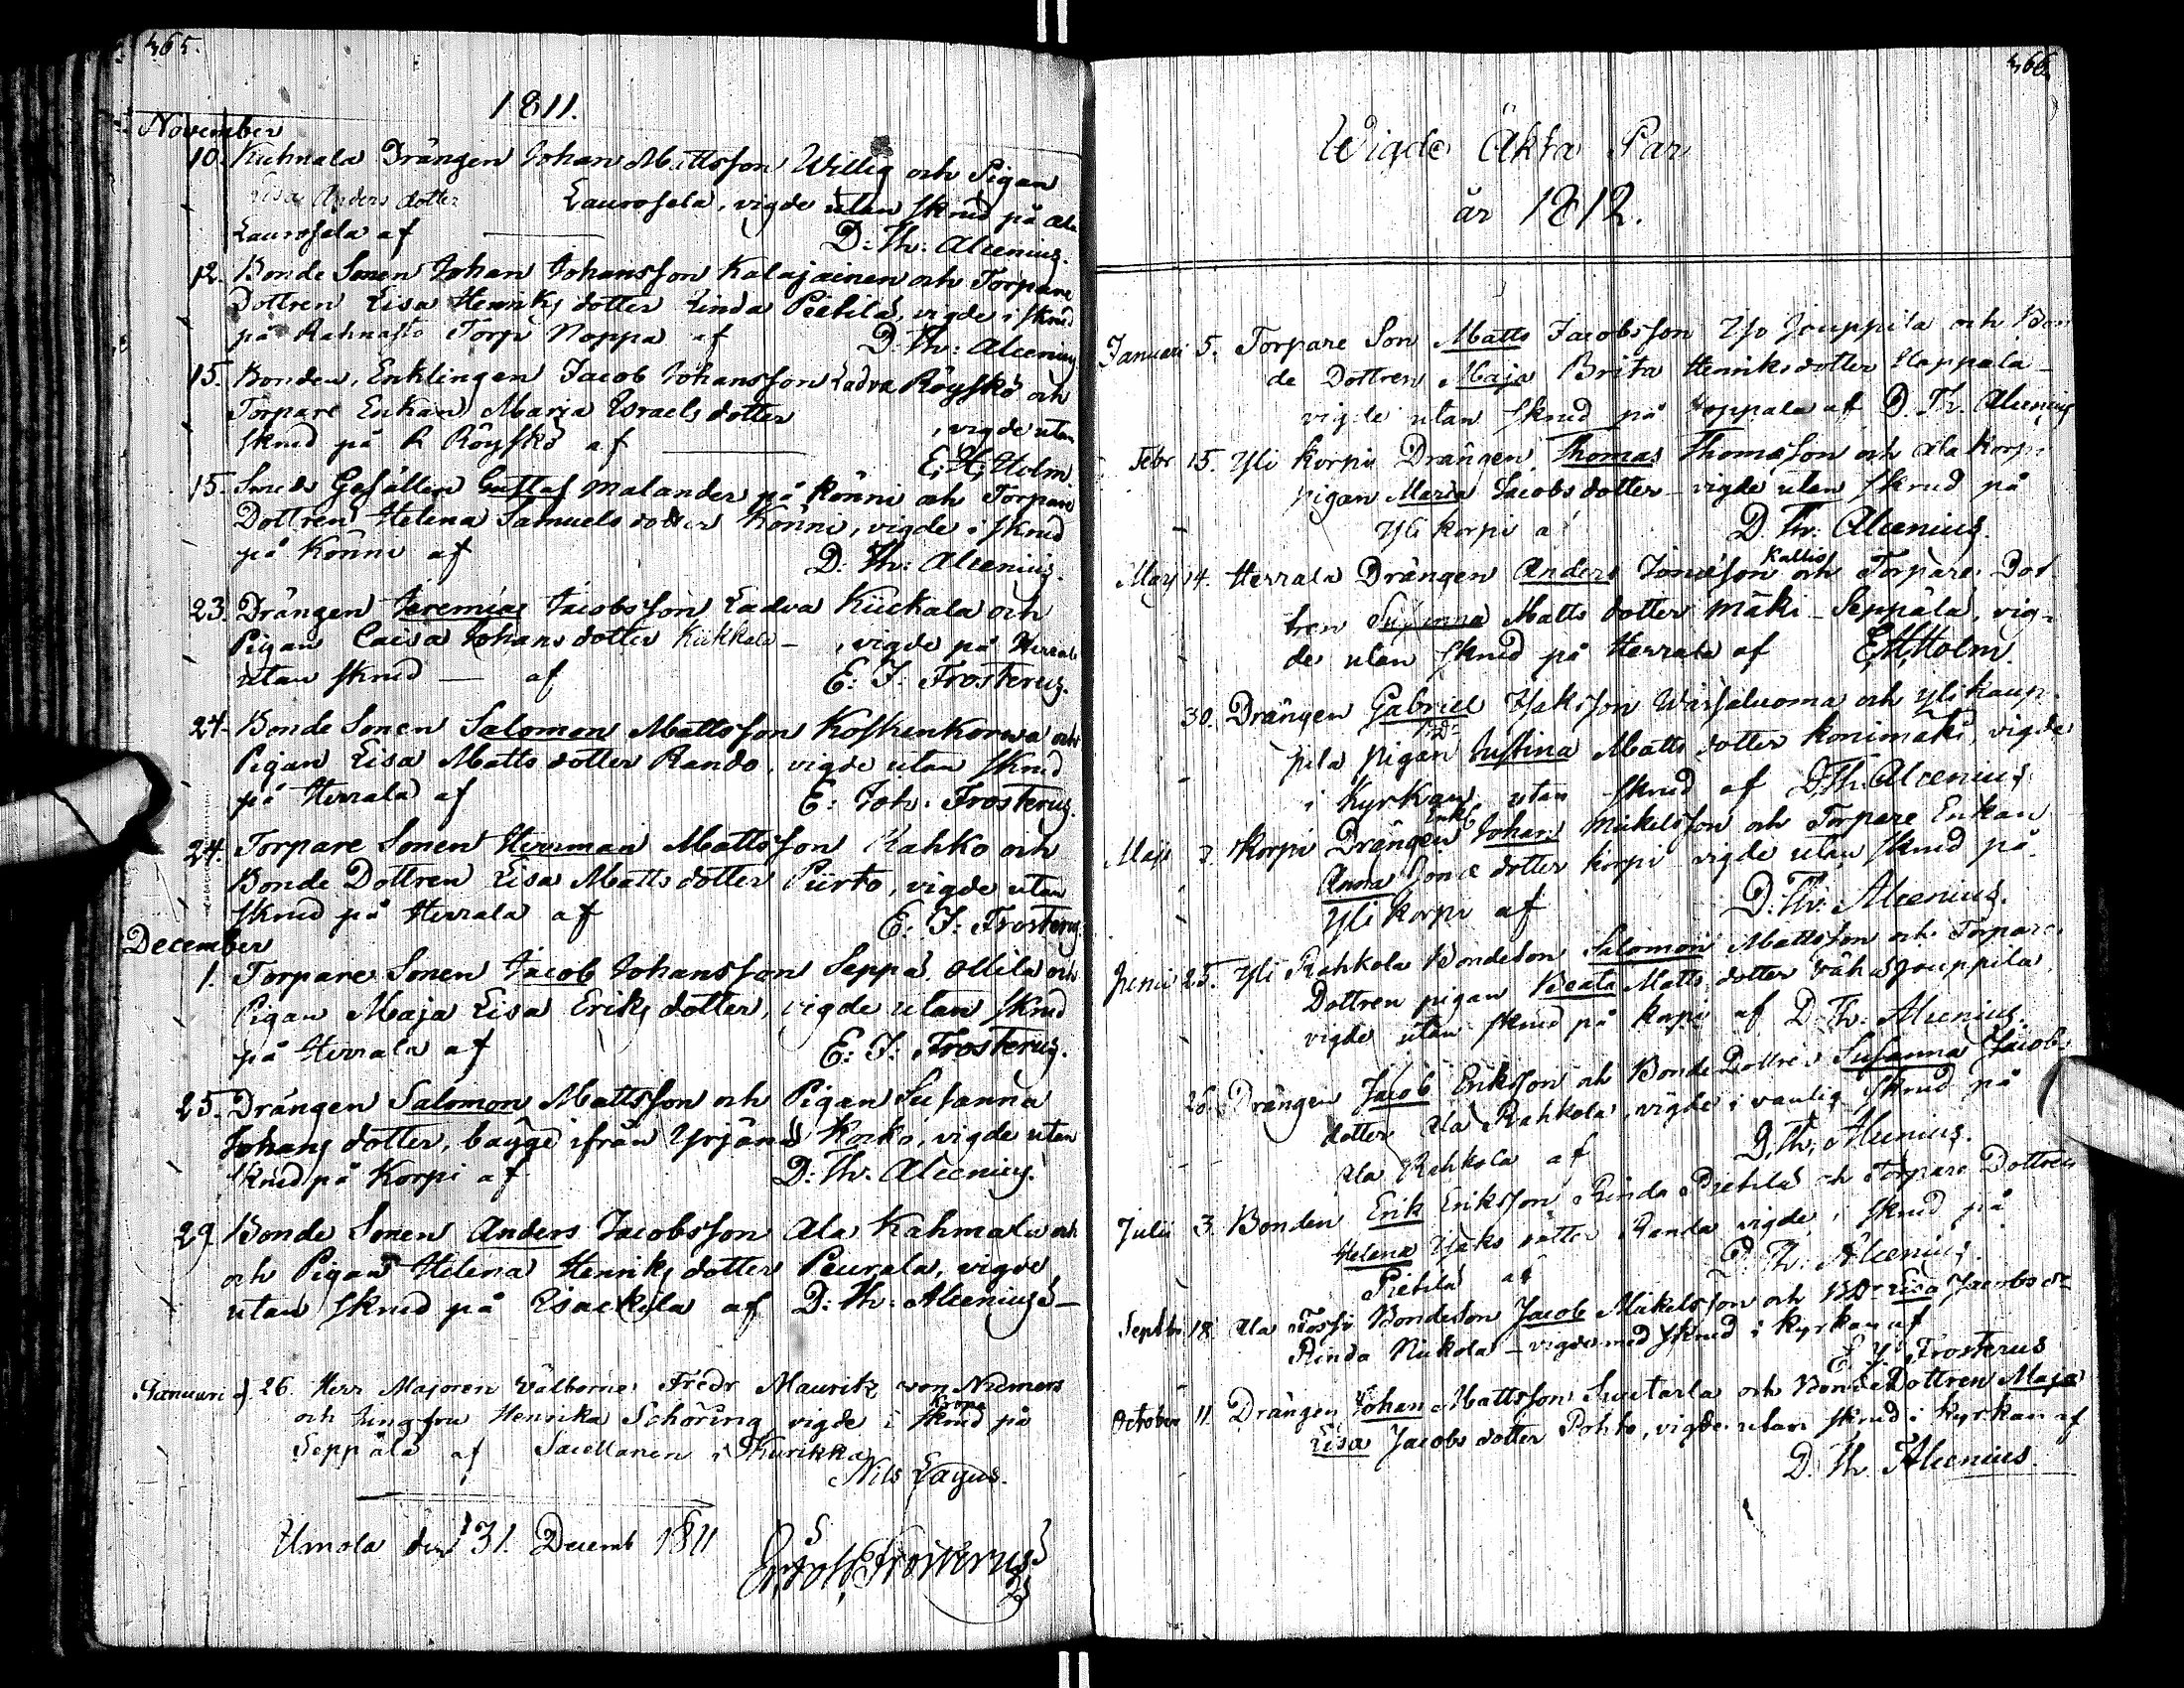 465.
1811.
November
10. Kuhnala Drängen Johan Mattsson Willig och Pigan
Lisa Anders dotter Laurosela, vigde utan skrud på Ala
Laurosela af D: Th: Alcenius.
12. Bonde Sonen Johan Johansson Kalajainen och Torpare
Dottren Lisa Henriks dotter Linda Pietilä, vigde i skrud
på Torp Noppa af D: Th: Alcenius
15. Bonden, Enklingen Jacob Johansson Ladva Röyskö och
Torpare Enkan Marja Israels dotter , vigde utan
skrud på R Röyskö af E: H: Holm
15. Smeds Gesällen Gustaf Malander på Könni och Torpare
Dottren Helena Samuels dotter Könni, vigde i skrud
på Könni af D: Th: Alcenius.
23. Drängen Jeremias Jacobsson Ladva Kuckala och
Pigan Caisa Johans dotter Kukkala - , vigde på Herrala
utan skrud — af E: J: Frosterus.
24. Bonde Sonen Salomon Mattsson Koskenkorwa och
Pigan Lisa Matts dotter Rando, vigde utan skrud
på Herrala af E: Joh: Frosterus.
24. Torpare Sonen Herrman Mattsson Rahko och
Bonde Dottren Lisa Matts dotter Piirto, vigde utan
skrud på Herrala af E: J: Frosterus.
December
1. Torpare Sonen Jacob Johansson Seppä Ollila och
Pigan Maja Lisa Eriks dotter, vigde utan skrud
på Herrala af E: J: Frosterus.
25. Drängen Salomon Mattsson och Pigan Susanna
Johans dotter, bägge ifrån Yrjänä Kocko, vigde utan
skrud på Korpi af D: Th: Alcenius.
29 Bonde Sonen Anders Jacobsson Ala Kahmala och
och Pigan Helena Henriks dotter Peurala, vigde
utan skrud på Isackyla af D: Th: Alcenius -
Januari 26. Herr Majoren Välborne Fredr Maurik von Numers
och Jungfru Henrika Schöring vigde i Krona skrud på
Seppälä af Sacellanen i Kurikka
Nils Lagus.
Ilmola den 31. Decemb 1811
Er: Joh: Frosterus
466
Wigde Äkta Par
år 1812.
Januari 5. Torpare Son Matts Jacobsson Yso Jouppila och Bon
de Dottren Maja Brita Henriks dotter Happala -
vigde utan skrud på Hoppala af D. Th. Alcenius
Febr 15. Yli Korpi Drängen Thomas Thomasson och Ala Korpi
pigan Maria Jacobs dotter - vigde utan skrud på
Yli korpi af D. Th: Alcenius.
May 14. Herrala Drängen Anders Jonæson Kallis och Torpare Dot
tren Susanna Matts dotter Mäki-Seppälä, vig-
de utan skrud på Herrala af E. H. Holm.
30. Drängen Gabriel Isaksson Warsaluoma och Yli kaup
pila pigan Justina Matts dotter Konimäki, vigde
i Kyrkan utan skrud af D. Th. Alcenius
Maji 3. Korpi Drängen Enkl Johan Mickelsson och Torpare Enkan
Anna Jonæ dotter korpi vigde utan skrud på
Yli korpi af D: Th: Alcenius.
Junii 25. Yli Rahkola Bondeson Salomon Mattsson och Torpare
Dottren pigan Beata Matts dotter Vähä Jouppila,
vigde utan skrud på af D. Th: Alcenius.
26. Drängen Jacob Eriksson och Bonde Dottren Susanna Jacobs
dotter Ala Rahkola, vigde i vanlig skrud på
Ala Rahkola af D: Th: Alcenius.
Julii 3. Bonden Erik Eriksson Rinda Pietilä och Torpare Dottren
Helena Isaks dotter Randa vigde i skrud på
Pietilä af D. Th: Alcenius.
Septbr 18 Ala Fossi Bondeson Jacob Mickelsson och BDr Lisa Jacobs dr
Rinda Nickola - vigde med skrud i kyrkan af
E. J. Frosterus
October 11. Drängen Johan Mattsson Luutarla och Bonde Dottren Maja
Lisa Jacobs dotter Pohto, vigde utan skrud i kyrkan af
D. Th Alcenius.